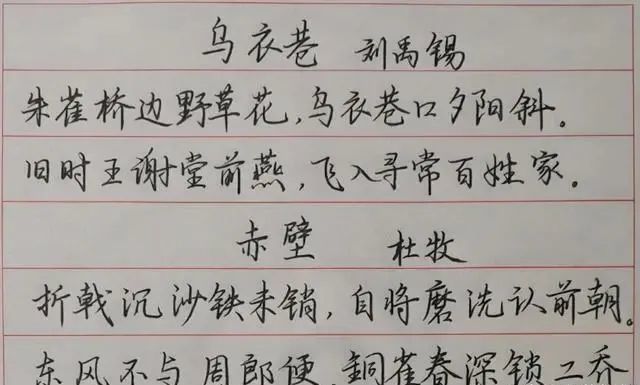 乌衣巷 刘禹锡
朱雀桥边野草花,乌衣巷口夕阳斜。
旧时王谢堂前燕,飞入寻常百姓家。
赤壁 杜牧
折戟沉沙铁未销,自将磨洗认前朝。
东风不与周郎便,銅雀春深锁二乔